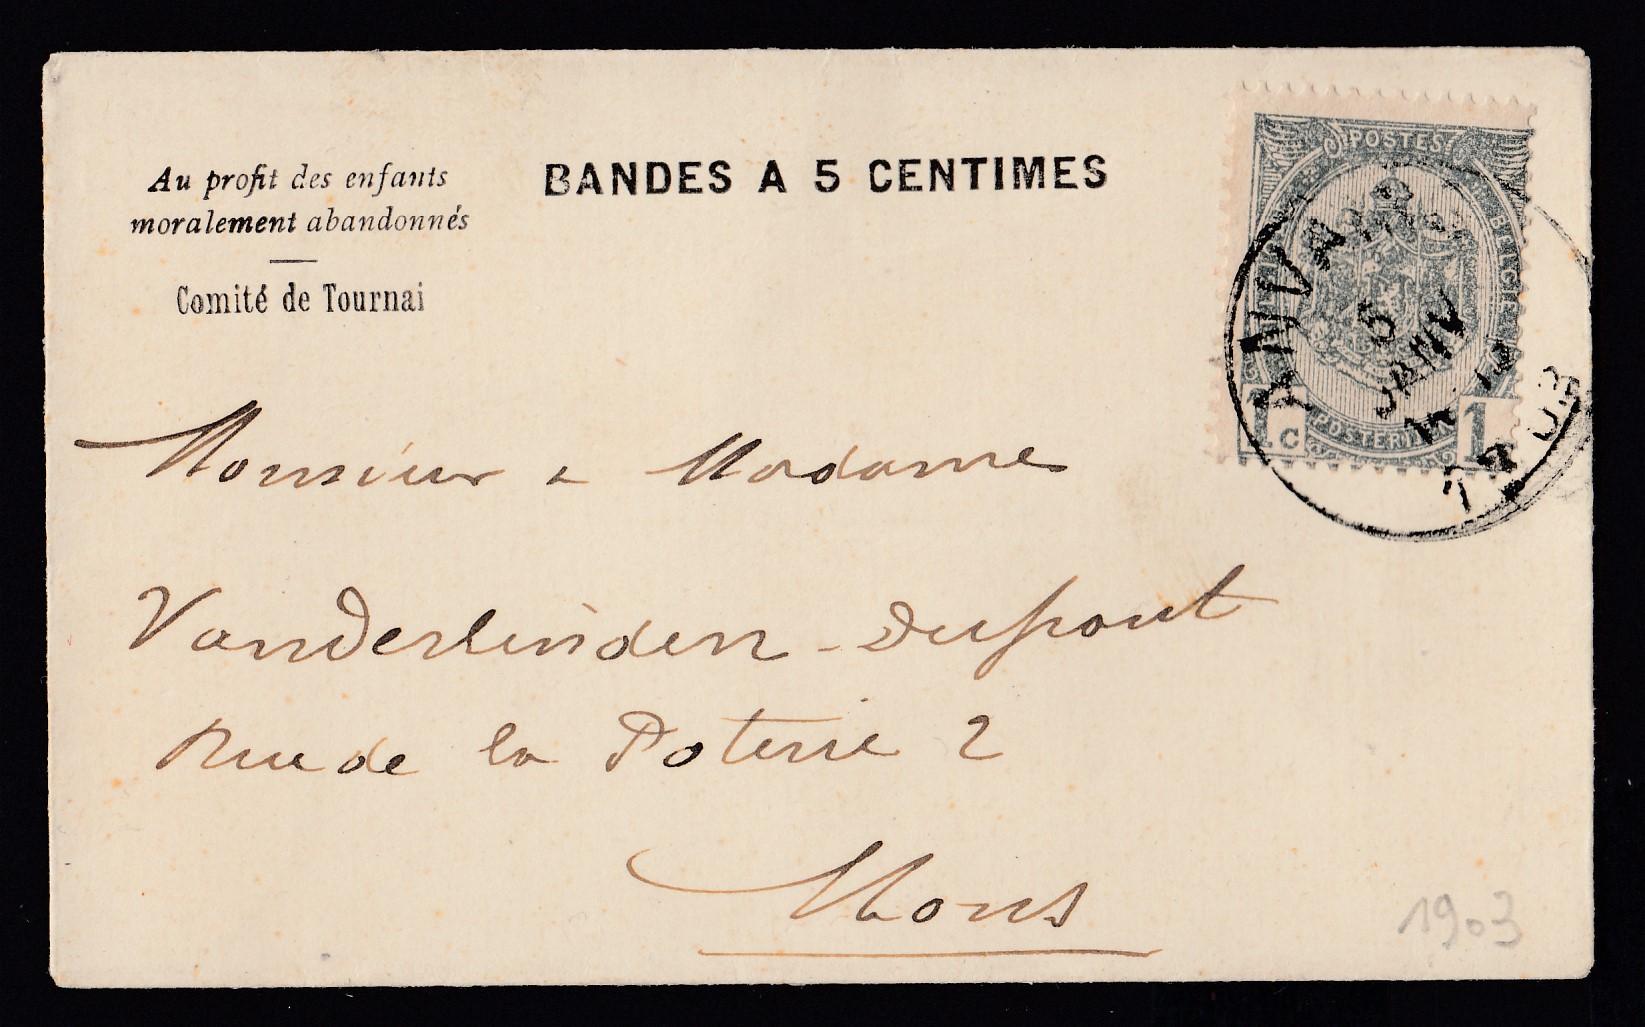 Au profit des enfants
moralement abandonnés
Comité de Tournai
BANDES A 5 CENTIMES
POSTES
BELGE
1 C
POSTERIJ
1
ANVERS
5
JANV
Monsieur & Madame
Vanderlinden-Dupont
Rue de la Poterie 2
Mons
1903